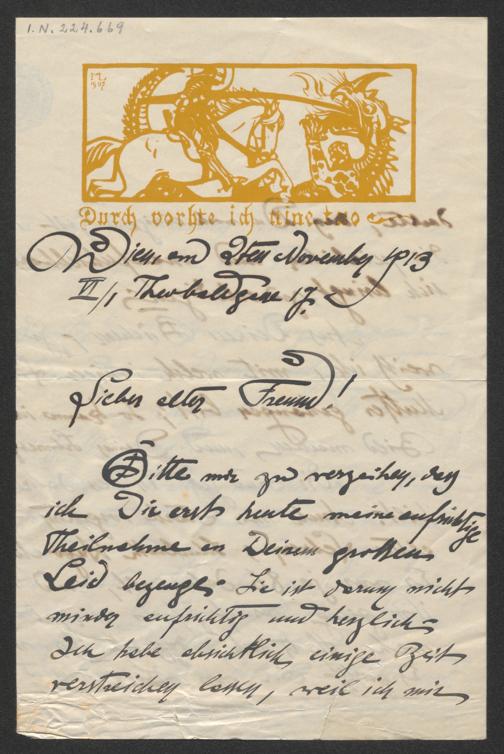 I.N. 224.669
Durch vorhte ich
Wien, am 2ten November 1913
VI/1, Theobaldgasse 17.
Lieber alter Freund!
Bitte mir zu verzeihen, daß
ich Dir erst heute meine aufrichtige
Theilnahme an Deinem großen
Leid bezeuge. Sie ist darum nicht
minder aufrichtig und herzlich.
Ich habe absichtlich einige Zeit
verstreichen lassen, weil ich mir